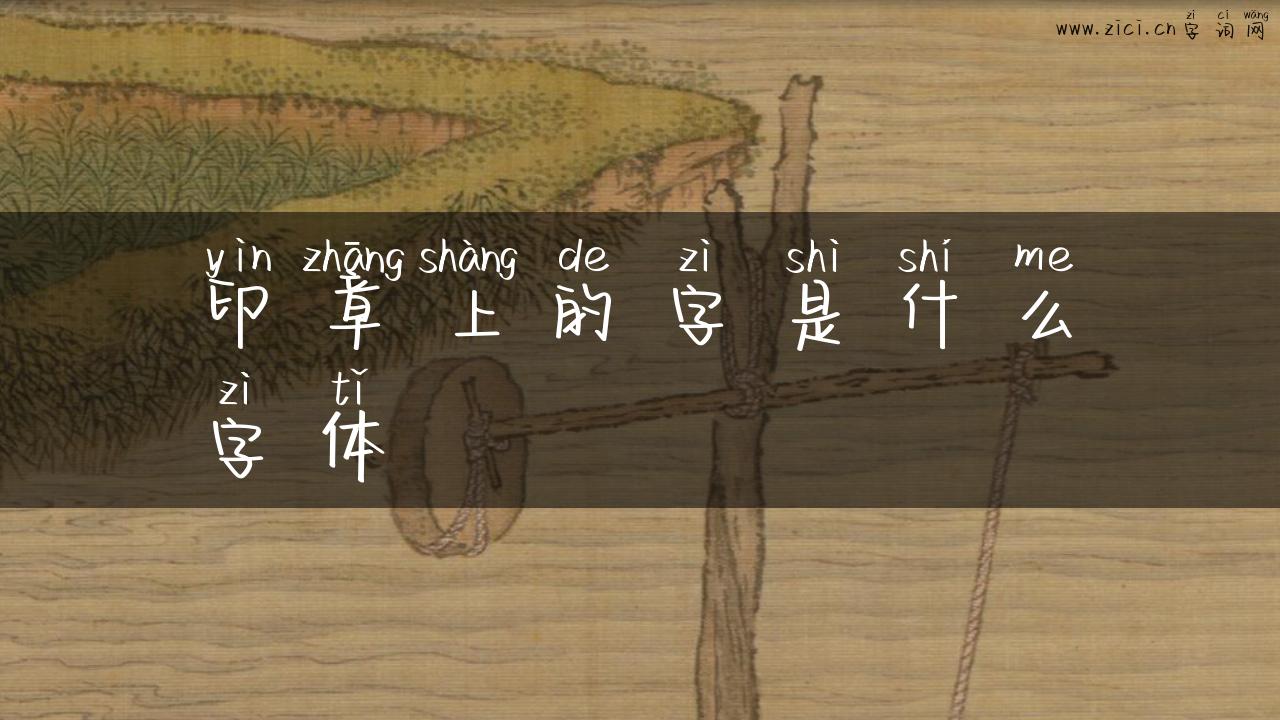 zì cí wǎng
www.zici.cn 字词网
yìn zhāng shàng de zì shì shí me
印章上的字是什么
zì tǐ
字体